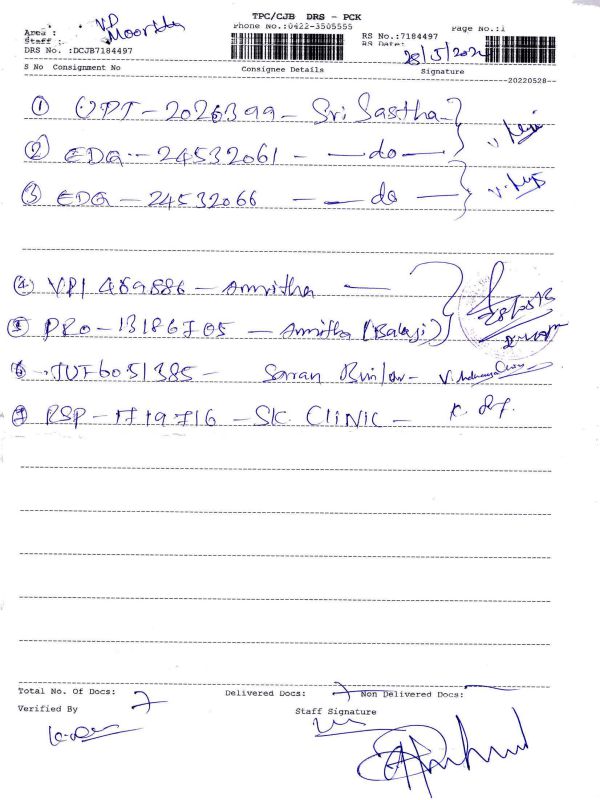 TPC/CJB DRS - PCK
Area : V.P
Phone No.:0422-3505555
Page No.:1
Staff :
RS No.:7184497
DRS No. :DCJB7184497
RS Date:
28/5/2022
S No Consignment No Consignee Details Signature
20220528
① OPT - 2026399 - Sri Sastha
② EDG - 24532061 - do -
③ EDG - 24532066 - do -
④ VPI 489886 - Amritha -
⑤ PRO - 13186705 - Amritha (Balaji)
⑥ JUF6051385 - Saran
⑦ RSP - 1719716 - SK CLINIC -
Total No. Of Docs: 7 Delivered Docs: 7 Non Delivered Docs: -
Verified By Staff Signature